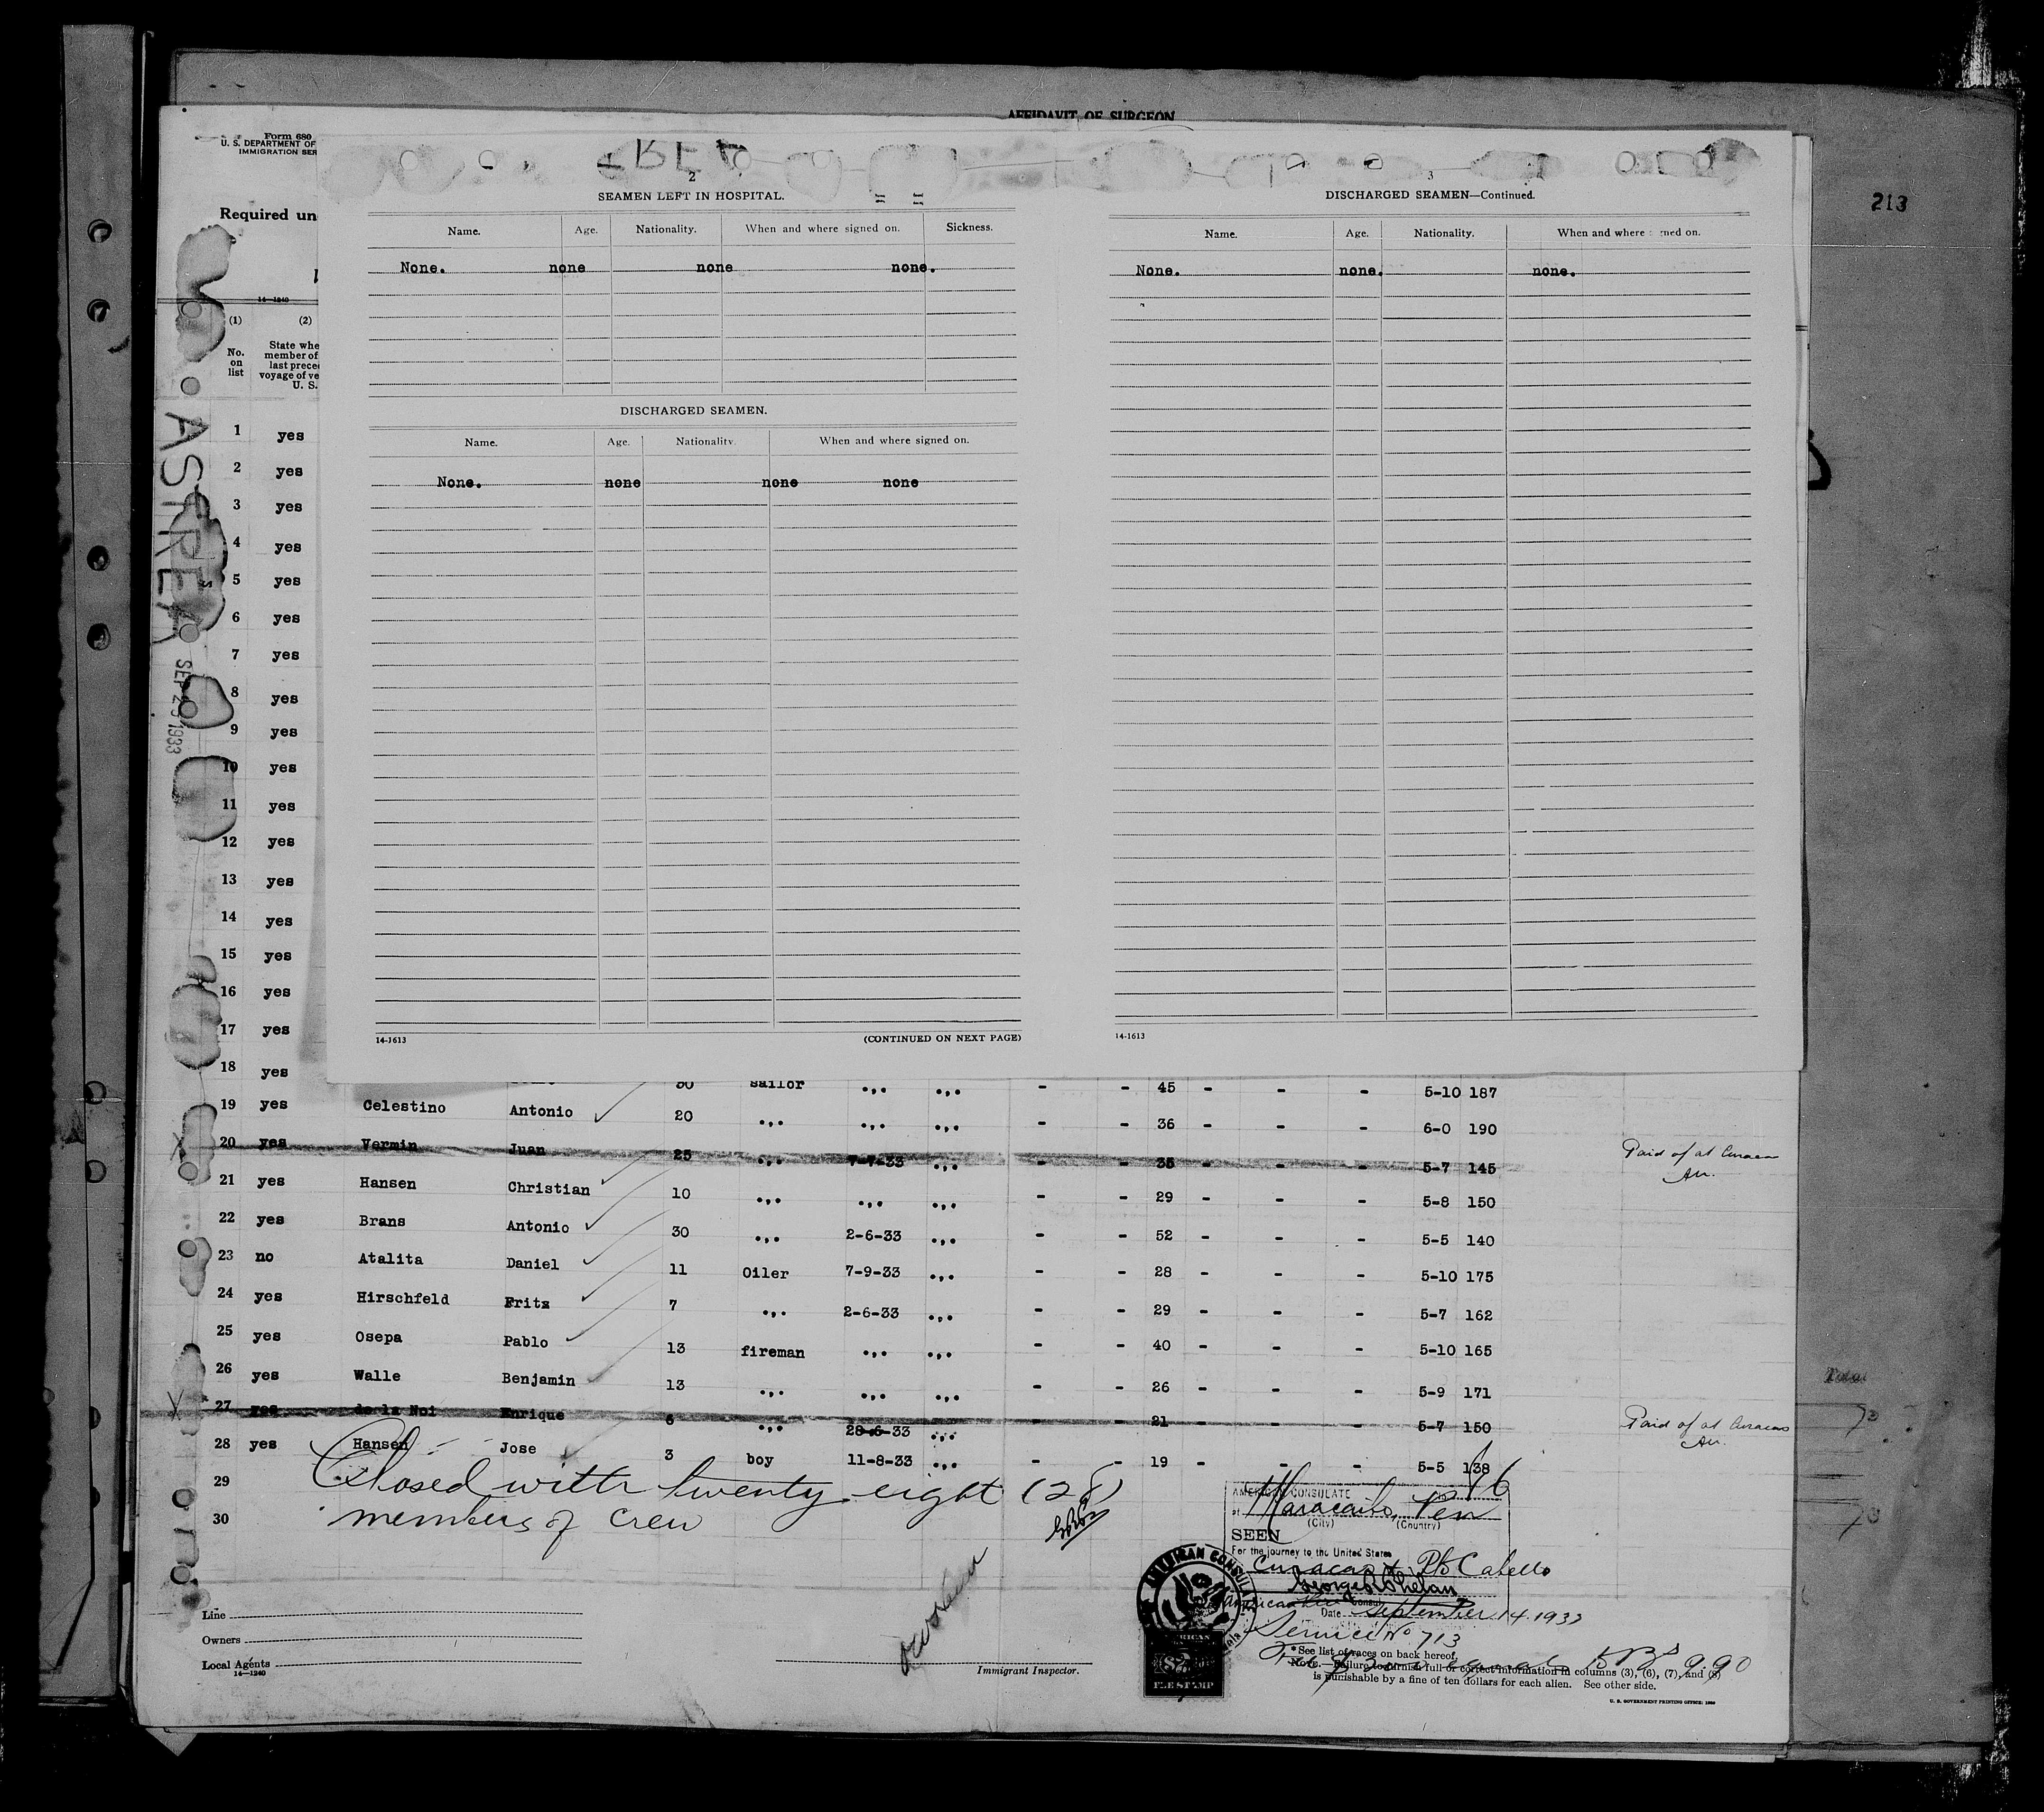 AFFIDAVIT OF SURGEON
213
Form 680
U. S. DEPARTMENT OF
IMMIGRATION SER
Required un
14—1240
(1) (2)
No. on list
State whe
member of
last prece
voyage of ve
U. S.
ASTREA
SEP 25 1933
2
SEAMEN LEFT IN HOSPITAL.
Name. Age. Nationality. When and where signed on. Sickness.
None. none none none.
DISCHARGED SEAMEN.
Name. Age. Nationality. When and where signed on.
None. none none none
14-1613 (CONTINUED ON NEXT PAGE)
3
DISCHARGED SEAMEN—Continued.
Name. Age. Nationality. When and where ned on.
None. none. none.
14-1613
1 yes
2 yes
3 yes
4 yes
5 yes
6 yes
7 yes
8 yes
9 yes
10 yes
11 yes
12 yes
13 yes
14 yes
15 yes
16 yes
17 yes
18 yes 30 sailor .,. .,. - - 45 - - - 5-10 187
19 yes Celestino Antonio 20 .,. .,. .,. - - 36 - - - 6-0 190
20 yes Vermin Juan 25 .,. 7-7-33 .,. - - 35 - - - 5-7 145 Paid of at Curacao
21 yes Hansen Christian 10 .,. .,. .,. - - 29 - - - 5-8 150
22 yes Brans Antonio 30 .,. 2-6-33 .,. - - 52 - - - 5-5 140
23 no Atalita Daniel 11 Oiler 7-9-33 .,. - - 28 - - - 5-10 175
24 yes Hirschfeld Fritz 7 .,. 2-6-33 .,. - - 29 - - - 5-7 162
25 yes Osepa Pablo 13 fireman .,. .,. - - 40 - - - 5-10 165
26 yes Walle Benjamin 13 .,. .,. .,. - - 26 - - - 5-9 171
27 yes de la Noi Enrique 6 .,. 28-6-33 .,. - - 21 - - - 5-7 150 Paid of at Curacao
28 yes Hansen Jose 3 boy 11-8-33 .,. - - 19 - - - 5-5 138
29 Closed with twenty eight (28)
30 members of crew
AMERICAN CONSULATE
at Maracaibo, Ven
(City) (Country)
SEEN
For the journey to the United States
Curacao Pto Cabello
George R Phelan
American Vice Consul
Date September 14. 1933
Service No 713
AMERICAN CONSULA
FEE STAMP
Line
Owners
Local Agents
14—1240
Immigrant Inspector.
* See list of races on back hereof.
NOTE.—Failure to furnish full or correct information in columns (3), (6), (7), and (8)
is punishable by a fine of ten dollars for each alien. See other side.
U. S. GOVERNMENT PRINTING OFFICE: 1930
Total